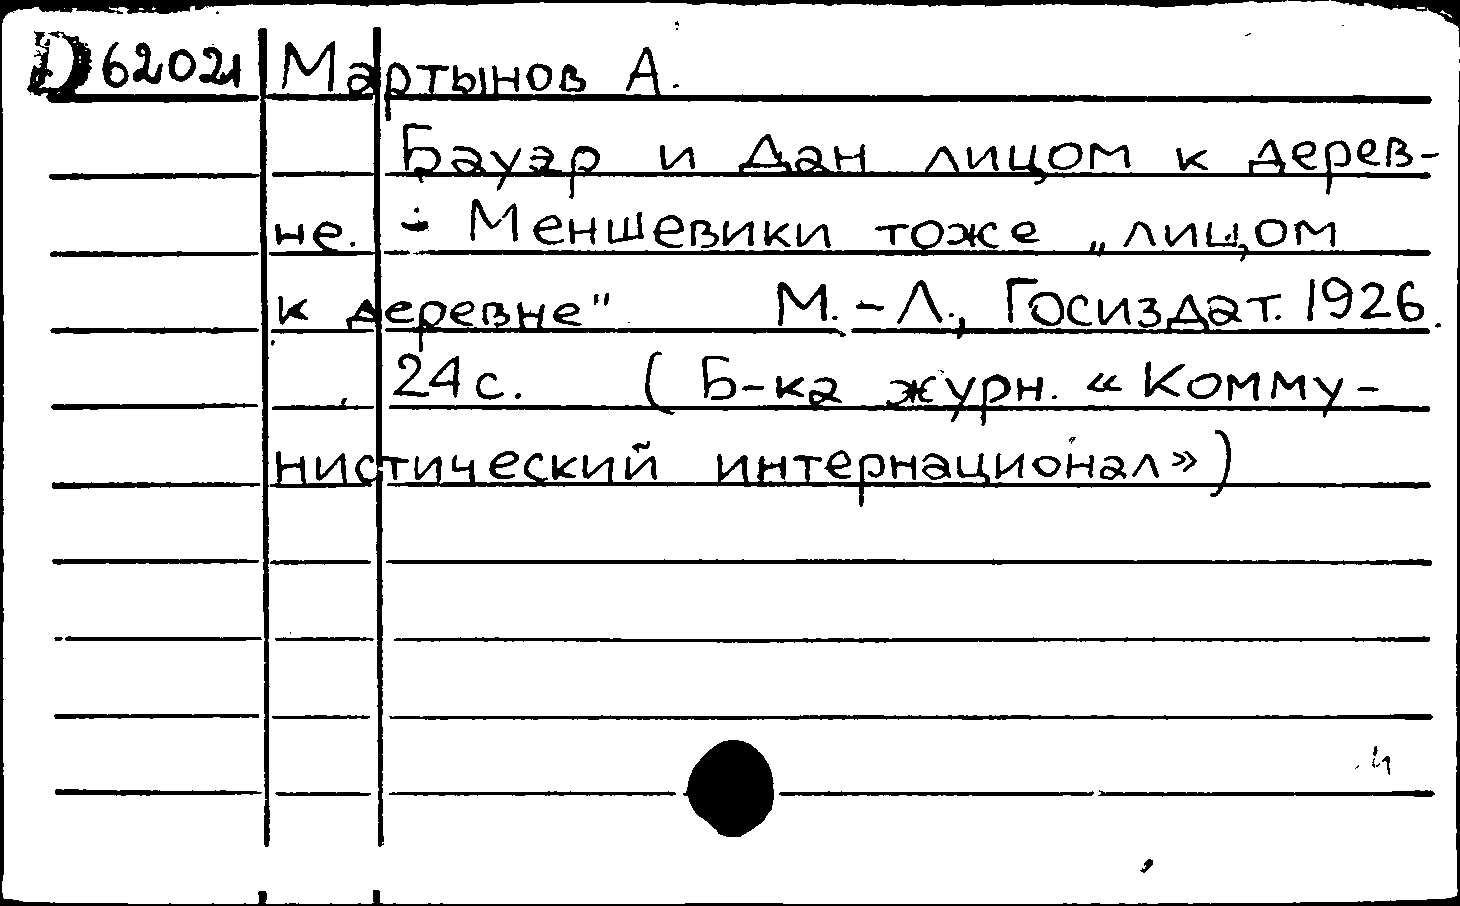 D 62021 Мартынов А.
Бауэр и Дан лицом к дерев-
не. - Меншевики тоже „лицом
к деревне" М.-Л., Госиздат. 1926.
24 с. (Б-ка журн. «Комму-
нистический интернационал»)